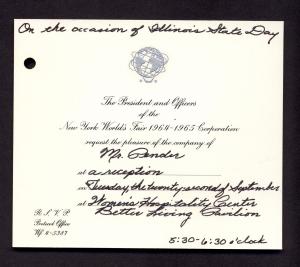 On the occasion of Illinois State Day
The President and Officers
of the
New York World's Fair 1964-1965 Corporation
request the pleasure of the company of
Mr. Pender
at a reception
on Tuesday, the twenty, second of September
at Women's Hospitality Center
Better Living Pavilion
R. S. V. P.
Protocol Office
WF 4-5387
5:30-6:30 o'clock